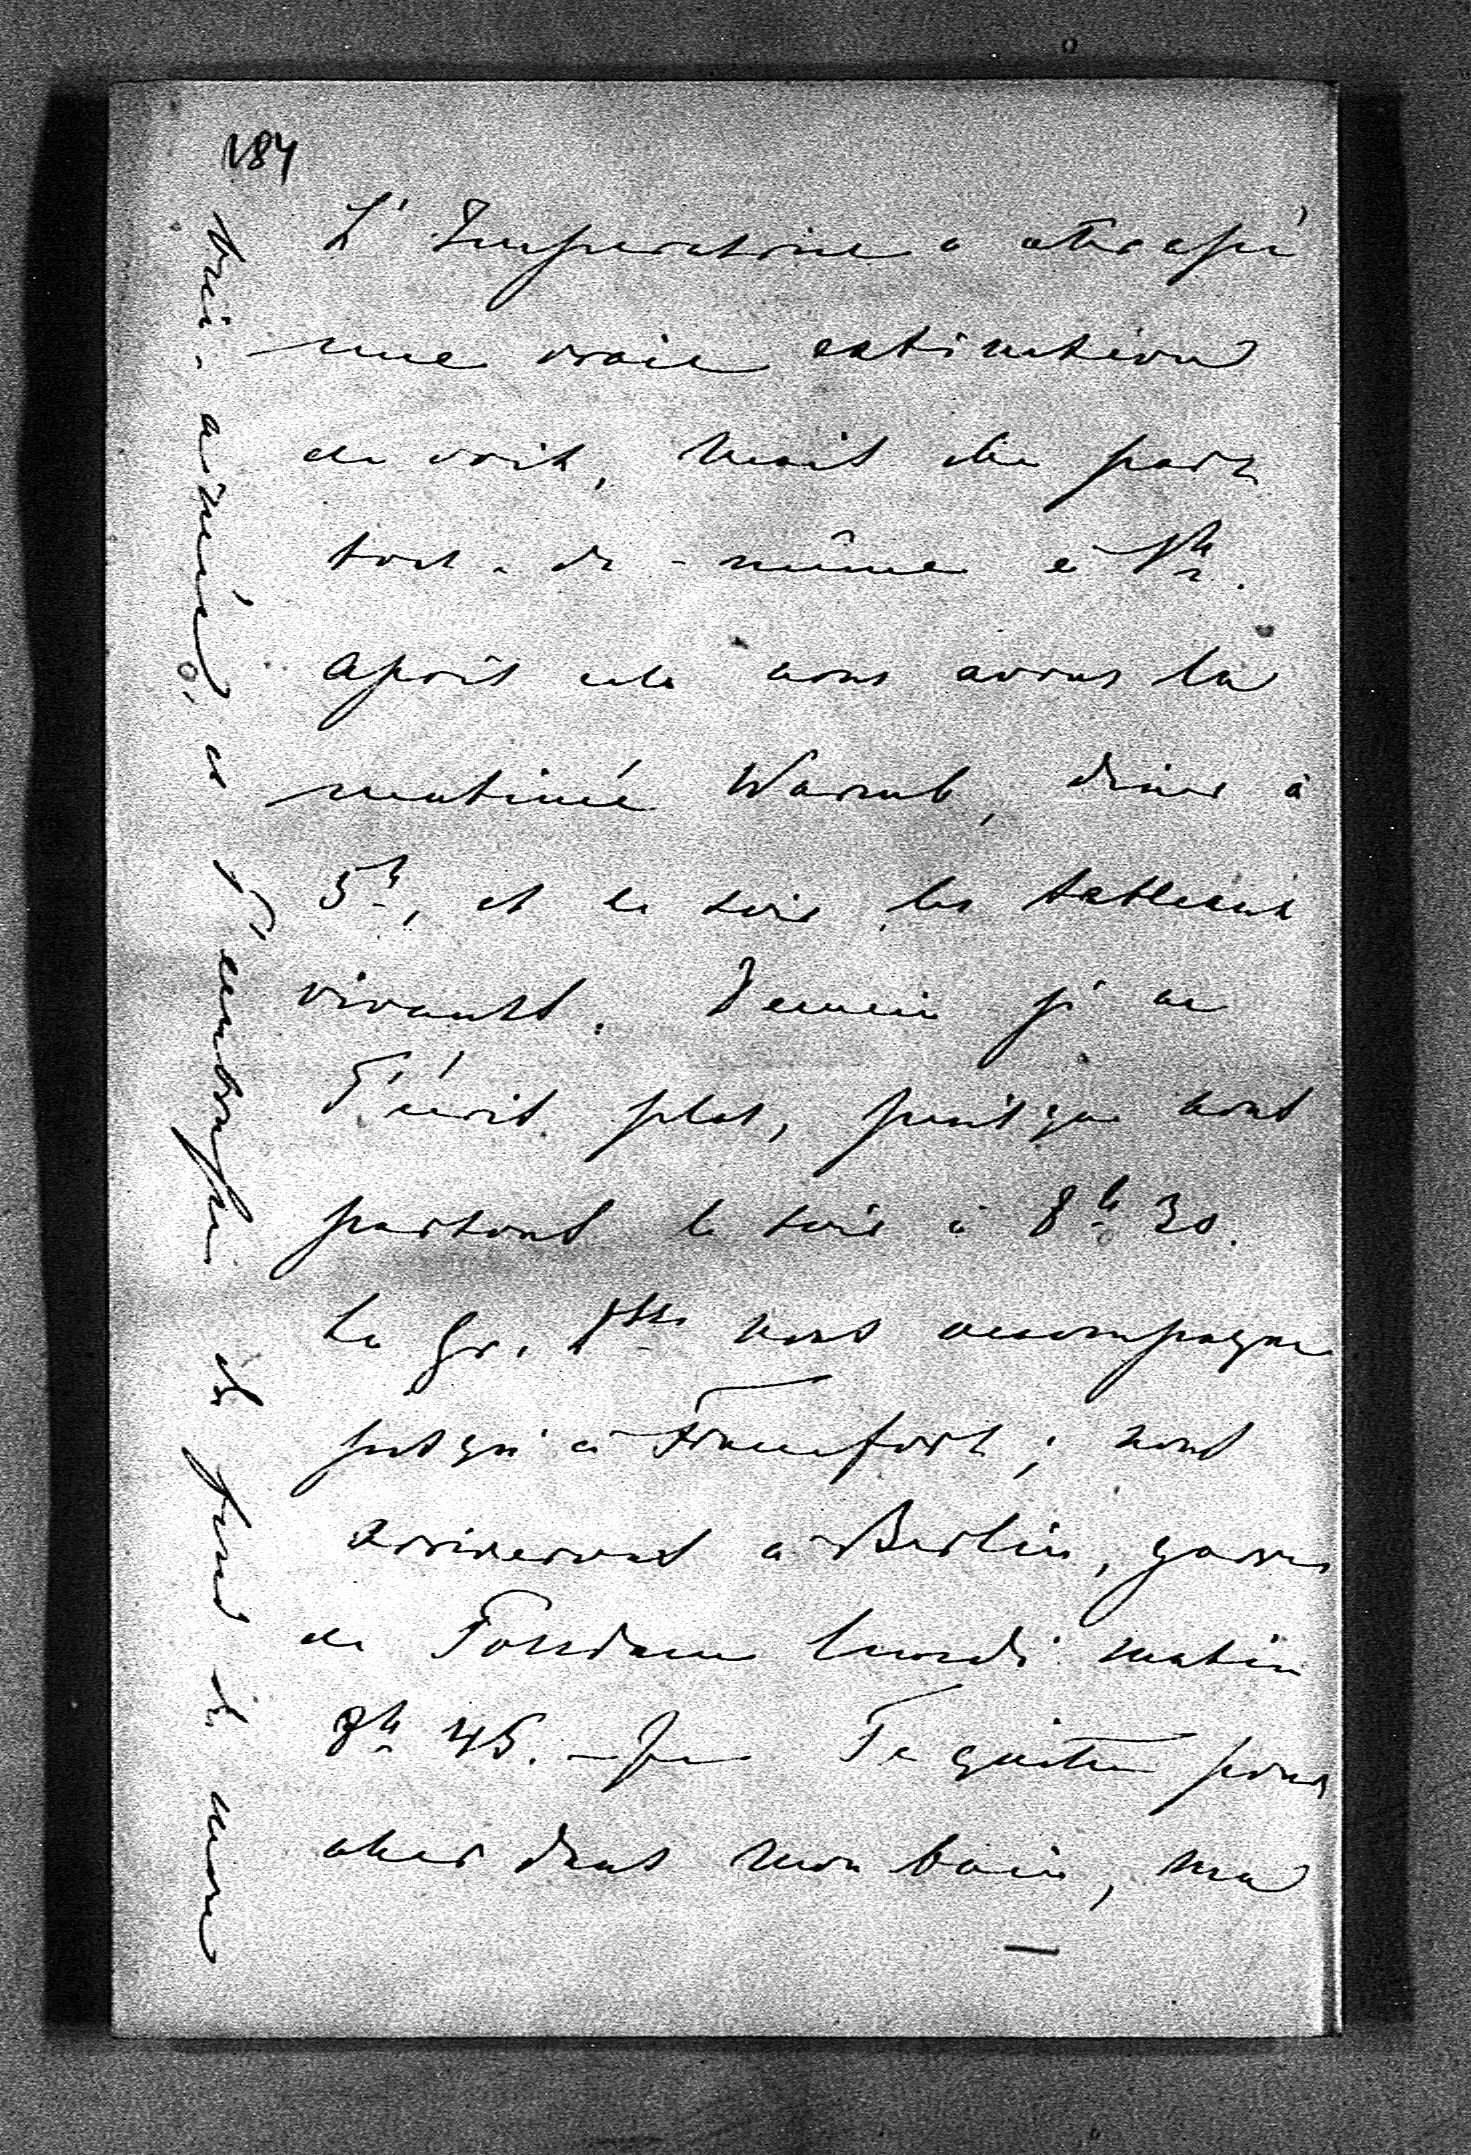 184
L'Imperatrice a attrapé
une vraie extinction
de voix, mais elle part
tout-de-même à 1h.
Après cela nous avons la
matinée Warmb, diner à
5h, et le soir les tableaux
vivants. Demain je ne
T'écris plus, puisque nous
partons le soir à 8h 30.
La Gr. Dsse nous accompagne
jusqu'à Francfort; nous
arriverons à Berlin, garre
de Potsdam lundi matin
8h 45. - Je Te quitte pour
aller dans mon bain, ma
bien-aimée, et T'embrasse du fond de mon